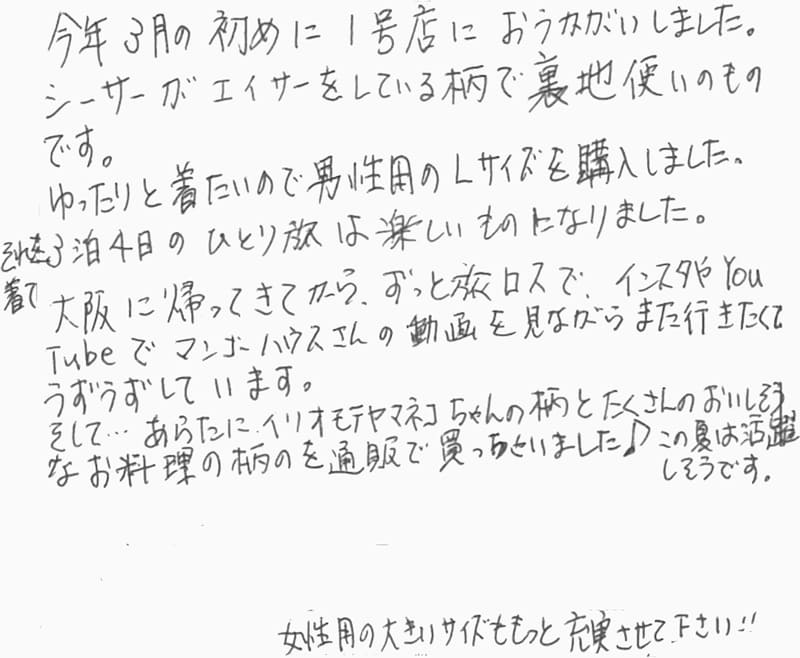 今年3月の初めに1号店におうかがいしました。
シーサーがエイサーをしている柄で裏地使いのもの
です。
ゆったりと着たいので男性用のLサイズを購入しました。
それを着て
3泊4日のひとり旅は楽しいものになりました。
大阪に帰ってきてから、ずっと旅ロスで、インスタやYou
Tubeでマンゴーハウスさんの動画を見ながらまた行きたくて
うずうずしています。
そして…あらたにイリオモテヤマネコちゃんの柄とたくさんのおいしそう
なお料理の柄のを通販で買っちゃいました♪この夏は活躍
しそうです。
女性用の大きいサイズももっと充実させて下さい!!